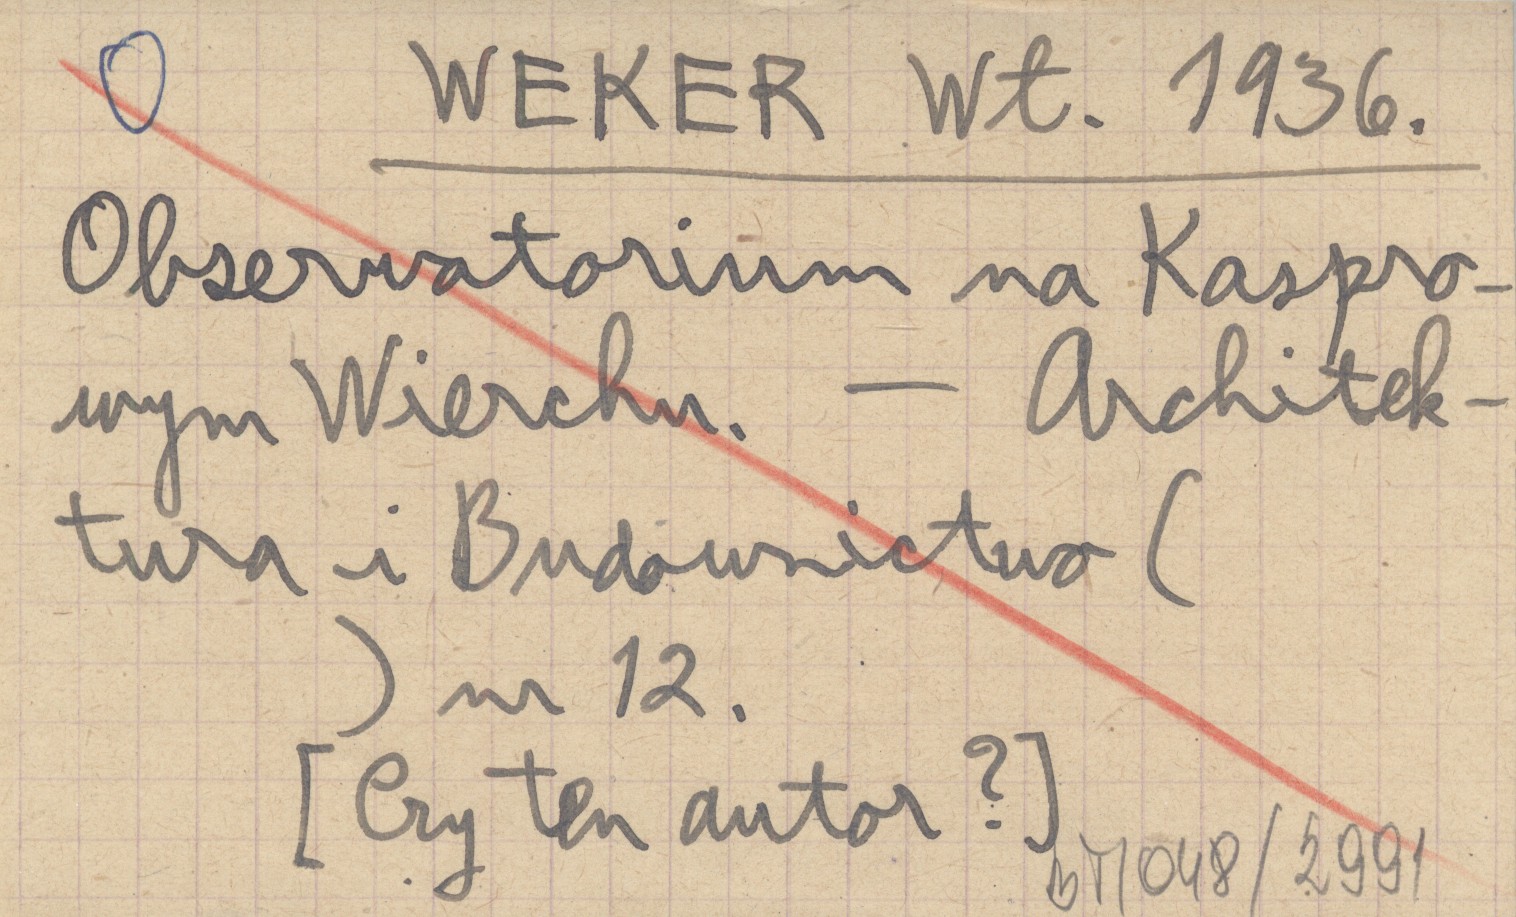 WEKER Wł. 1936.
Obserwatorium na Kaspro-
wym Wierchu. — Architek-
tura i Budownictwo (
) nr 12.
[Czy ten autor?]
BT/048/2991